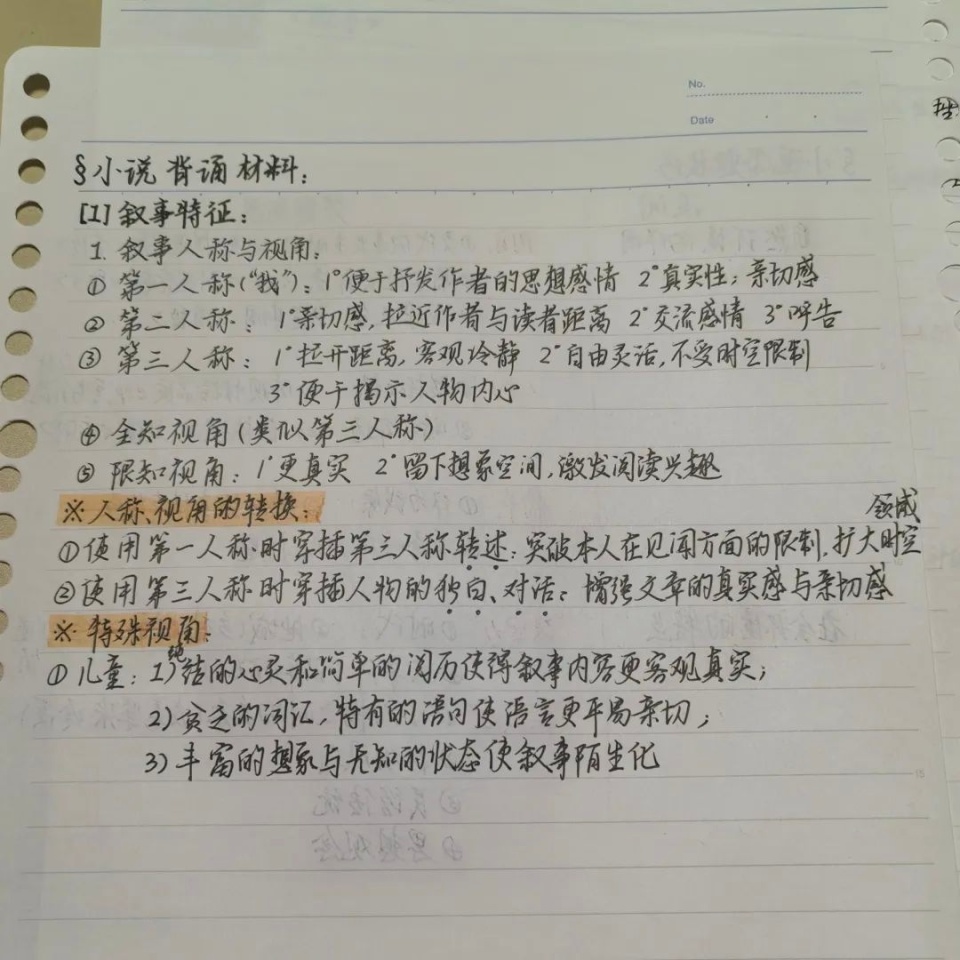 No.
Date
§小说 背诵材料:
[1]叙事特征:
1. 叙事人称与视角:
① 第一人称(“我”): 1°便于抒发作者的思想感情 2°真实性; 亲切感
② 第二人称: 1°亲切感, 拉近作者与读者距离 2°交流感情 3°呼告
③ 第三人称: 1°拉开距离, 客观冷静 2°自由灵活, 不受时空限制
3°便于揭示人物内心
④ 全知视角(类似第三人称)
⑤ 限知视角: 1°更真实 2°留下想象空间, 激发阅读兴趣
※人称、视角的转换:
领域
①使用第一人称时穿插第三人称转述: 突破本人在见闻方面的限制, 扩大时空
②使用第三人称时穿插人物的独白、对话: 增强文章的真实感与亲切感
※ 特殊视角:
① 儿童: 1)纯洁的心灵和简单的阅历使得叙事内容更客观真实;
2)贫乏的词汇, 特有的语句使语言更平易亲切;
3)丰富的想象与无知的状态使叙事陌生化